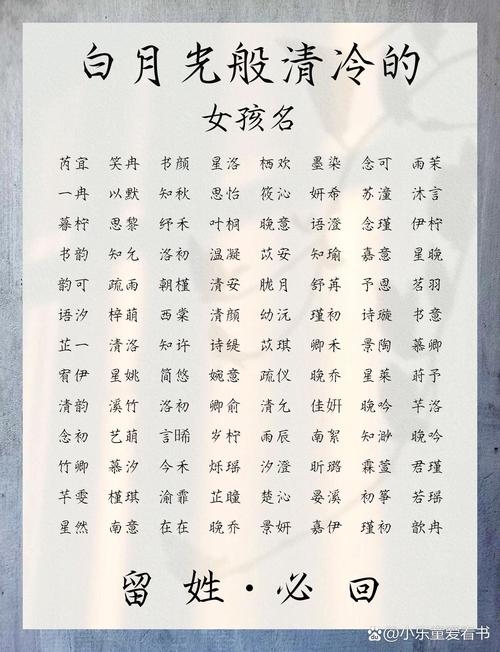 白月光般清冷的
女孩名
芮宜 笑冉 书颜 星洛 栖欢 墨染 念可 雨茉
一冉 以默 知秋 思怡 筱沁 妍希 苏潼 沐言
暮柠 思黎 纾禾 叶桐 晚意 语澄 念瑾 伊柠
书韵 知允 洛初 温凝 苡安 知瑜 嘉意 星晚
韵可 疏雨 朝槿 清安 胧月 舒苒 予恩 茗羽
语汐 梓萌 西棠 清颜 幼沅 瑾初 诗璇 书意
芷一 清洛 知许 诗缇 苡琪 卿禾 景陶 慕卿
宥伊 星姚 简悠 婉意 疏仪 晚乔 星莱 莳予
清韵 溪竹 洛初 卿俞 清允 佳妍 晚吟 芊洛
念初 艺萌 言晞 岁柠 雨辰 南絮 知渺 晚吟
竹卿 慕汐 今禾 烁瑶 汐澄 昕璐 霖萱 君瑾
芊雯 槿琪 渝霏 芷瞳 楚沁 晏溪 初筝 若瑶
星然 南意 在在 晚乔 景妍 嘉伊 瑾初 歆冉
留姓·必回
@小乐童爱看书